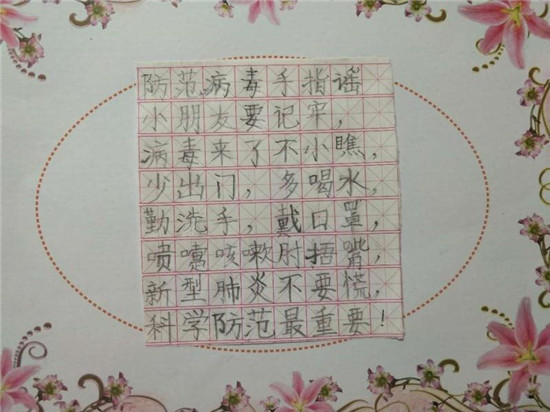 防范病毒手指谣
小朋友要记牢，
病毒来了不小瞧，
少出门，多喝水，
勤洗手，戴口罩，
喷嚏咳嗽肘捂嘴，
新型肺炎不要慌，
科学防范最重要！